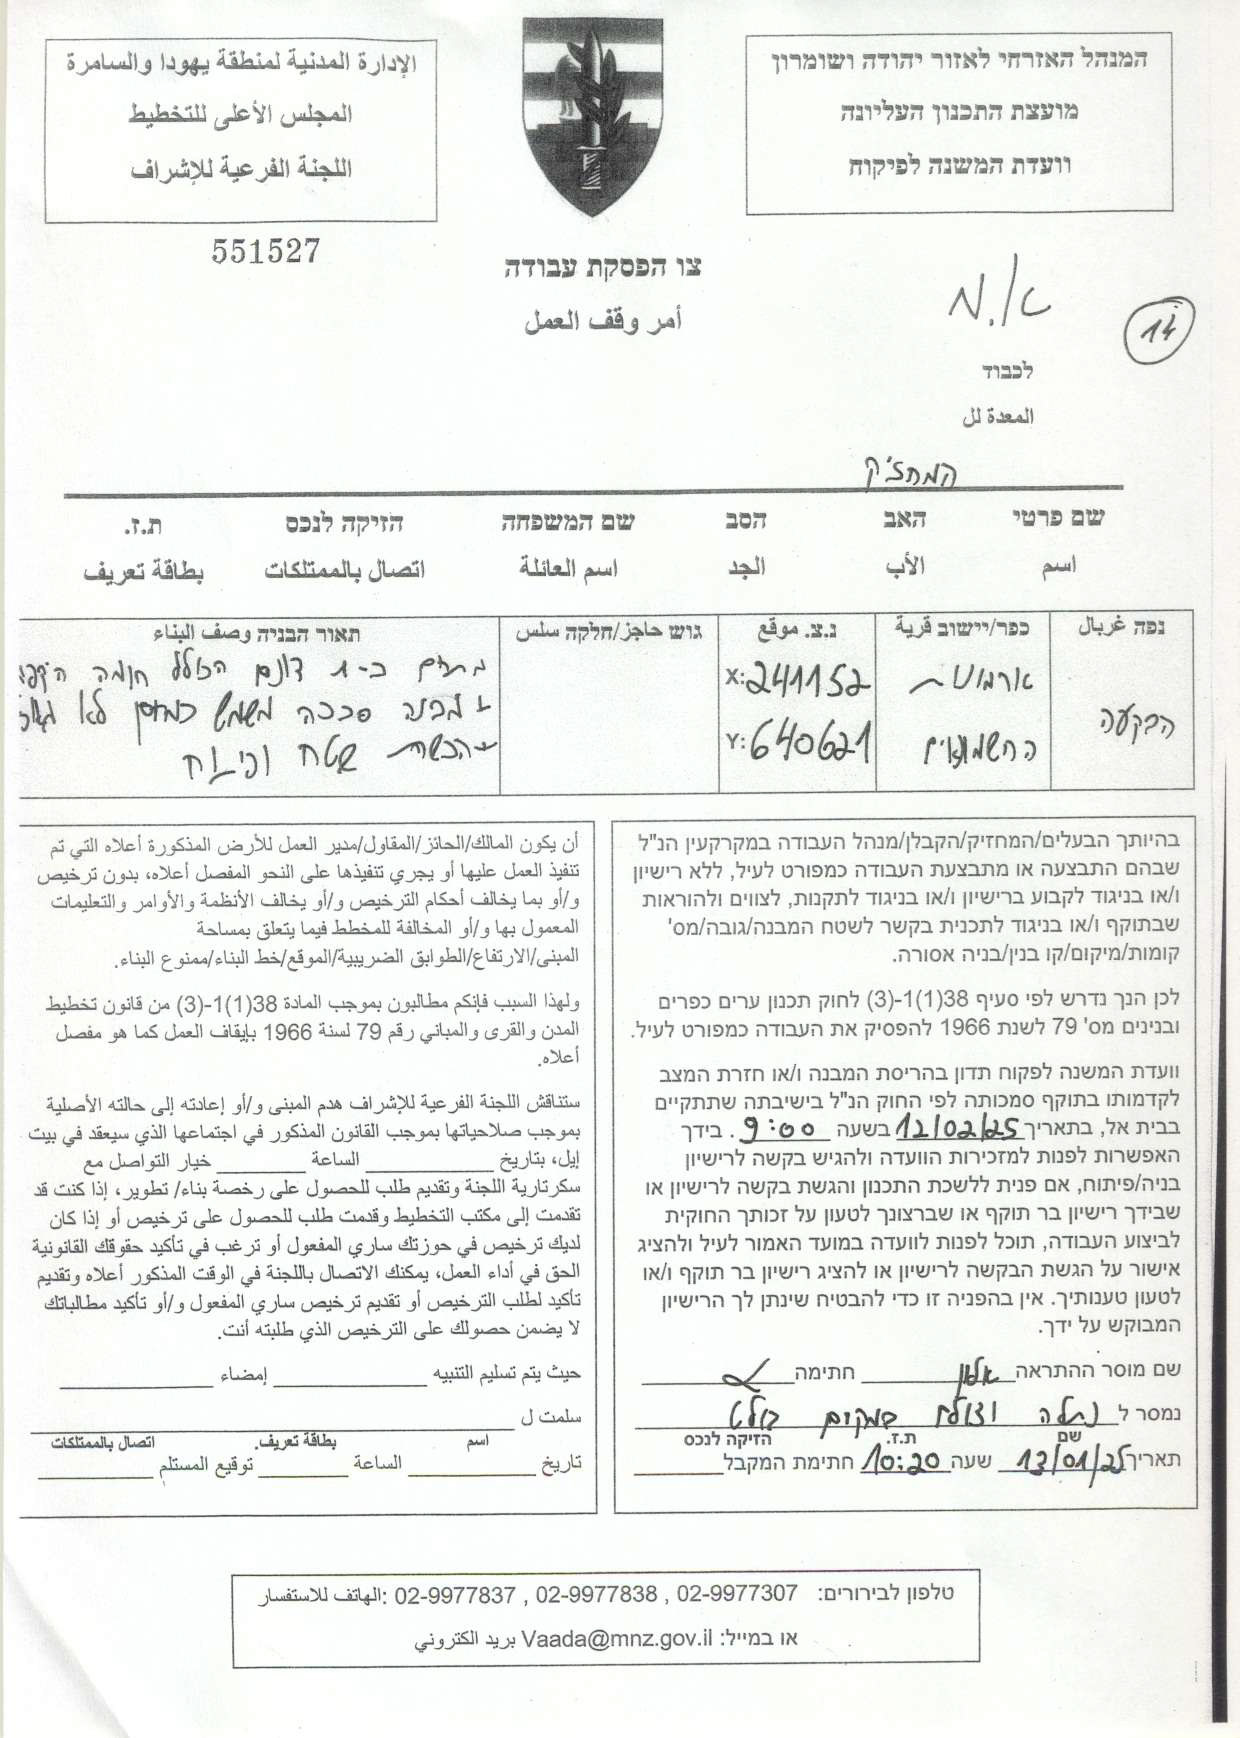 המנהל האזרחי לאזור יהודה ושומרון
מועצת התכנון העליונה
וועדת המשנה לפיקוח
الإدارة المدنية لמنطقة يهودا والسامرة
المجلس الأعلى للتخطيط
اللجنة الفرعية للإشراف
551527
צו הפסקת עבודה
أمر وقف العمل
א.מ
14
לכבוד
المعدة لل
המחזיק
שם פרטי האב הסב שם המשפחה הזיקה לנכס ת.ז.
اسم الأب الجد اسم العائلة اتصال بالممتلكات بطاقة تعريف
נפה غربال כפר/יישוב قرية נ.צ. موقع גוש حاجز/חלקה سلس תאור הבניה وصف البناء
הבקעה
ארמונות
החשמונאים
X: 241152
Y: 640621
מתחם כ-1 דונם הכולל חומה היקפ
מבנה סככה משמש כמחסן לא
הכשרת שטח
בהיותך הבעלים/המחזיק/הקבלן/מנהל העבודה במקרקעין הנ"ל
שבהם התבצעה או מתבצעת העבודה כמפורט לעיל, ללא רישיון
ו/או בניגוד לקבוע ברישיון ו/או בניגוד לתקנות, לצווים ולהוראות
שבתוקף ו/או בניגוד לתכנית בקשר לשטח המבנה/גובה/מס'
קומות/מיקום/קו בנין/בניה אסורה.
לכן הנך נדרש לפי סעיף 38(1)1-(3) לחוק תכנון ערים כפרים
ובנינים מס' 79 לשנת 1966 להפסיק את העבודה כמפורט לעיל.
וועדת המשנה לפקוח תדון בהריסת המבנה ו/או חזרת המצב
לקדמותו בתוקף סמכותה לפי החוק הנ"ל בישיבתה שתתקיים
בבית אל, בתאריך 12/02/25 בשעה 9:00. בידך
האפשרות לפנות למזכירות הוועדה ולהגיש בקשה לרישיון
בניה/פיתוח, אם פנית ללשכת התכנון והגשת בקשה לרישיון או
שבידך רישיון בר תוקף או שברצונך לטעון על זכותך החוקית
לביצוע העבודה, תוכל לפנות לוועדה במועד האמור לעיל ולהציג
אישור על הגשת הבקשה לרישיון או להציג רישיון בר תוקף ו/או
לטעון טענותיך. אין בהפניה זו כדי להבטיח שינתן לך הרישיון
המבוקש על ידך.
שם מוסר ההתראה אלון חתימה
נמסר ל נתלה וצולם במקום בולט
שם ת.ז. הזיקה לנכס
תאריך 13/01/25 שעה 10:20 חתימת המקבל
أن يكون المالك/الحائز/المقاول/مدير العمل للأرض المذكورة أعلاه التي تم
تنفيذ العمل عليها أو يجري تنفيذها على النحو المفصل أعلاه، بدون ترخيص
و/أو بما يخالف أحكام الترخيص و/أو يخالف الأنظمة والأوامر والتعليمات
المعمول بها و/أو المخالفة للمخطط فيما يتعلق بمساحة
المبنى/الارتفاع/الطوابق الضريبية/الموقع/خط البناء/ممنوع البناء.
ولهذا السبب فإنكم مطالبون بموجب المادة 38(1)1-(3) من قانون تخطيط
المدن والقرى والمباني رقم 79 لسنة 1966 بإيقاف العمل كما هو مفصل
أعلاه.
ستناقش اللجنة الفرعية للإشراف هدم المبنى و/أو إعادته إلى حالته الأصلية
بموجب صلاحياتها بموجب القانون المذكور في اجتماعها الذي سيعقد في بيت
إيل، بتاريخ الساعة خيار التواصل مع
سكرتارية اللجنة وتقديم طلب للحصول على رخصة بناء/ تطوير، إذا كنت قد
تقدمت إلى مكتب التخطيط وقدمت طلب للحصول على ترخيص أو إذا كان
لديك ترخيص في حوزتك ساري المفعول أو ترغب في تأكيد حقوقك القانونية
الحق في أداء العمل، يمكنك الاتصال باللجنة في الوقت المذكور أعلاه وتقديم
تأكيد لطلب الترخيص أو تقديم ترخيص ساري المفعول و/أو تأكيد مطالباتك
لا يضمن حصولك على الترخيص الذي طلبته أنت.
حيث يتم تسليم التنبيه إمضاء
سلمت ل
اسم بطاقة تعريف. اتصال بالممتلكات
تاريخ الساعة توقيع المستلم
טלפון לבירורים: 02-9977307 , 02-9977838 , 02-9977837 :الهاتف للاستفسار
או במייל: Vaada@mnz.gov.il بريد الكتروني